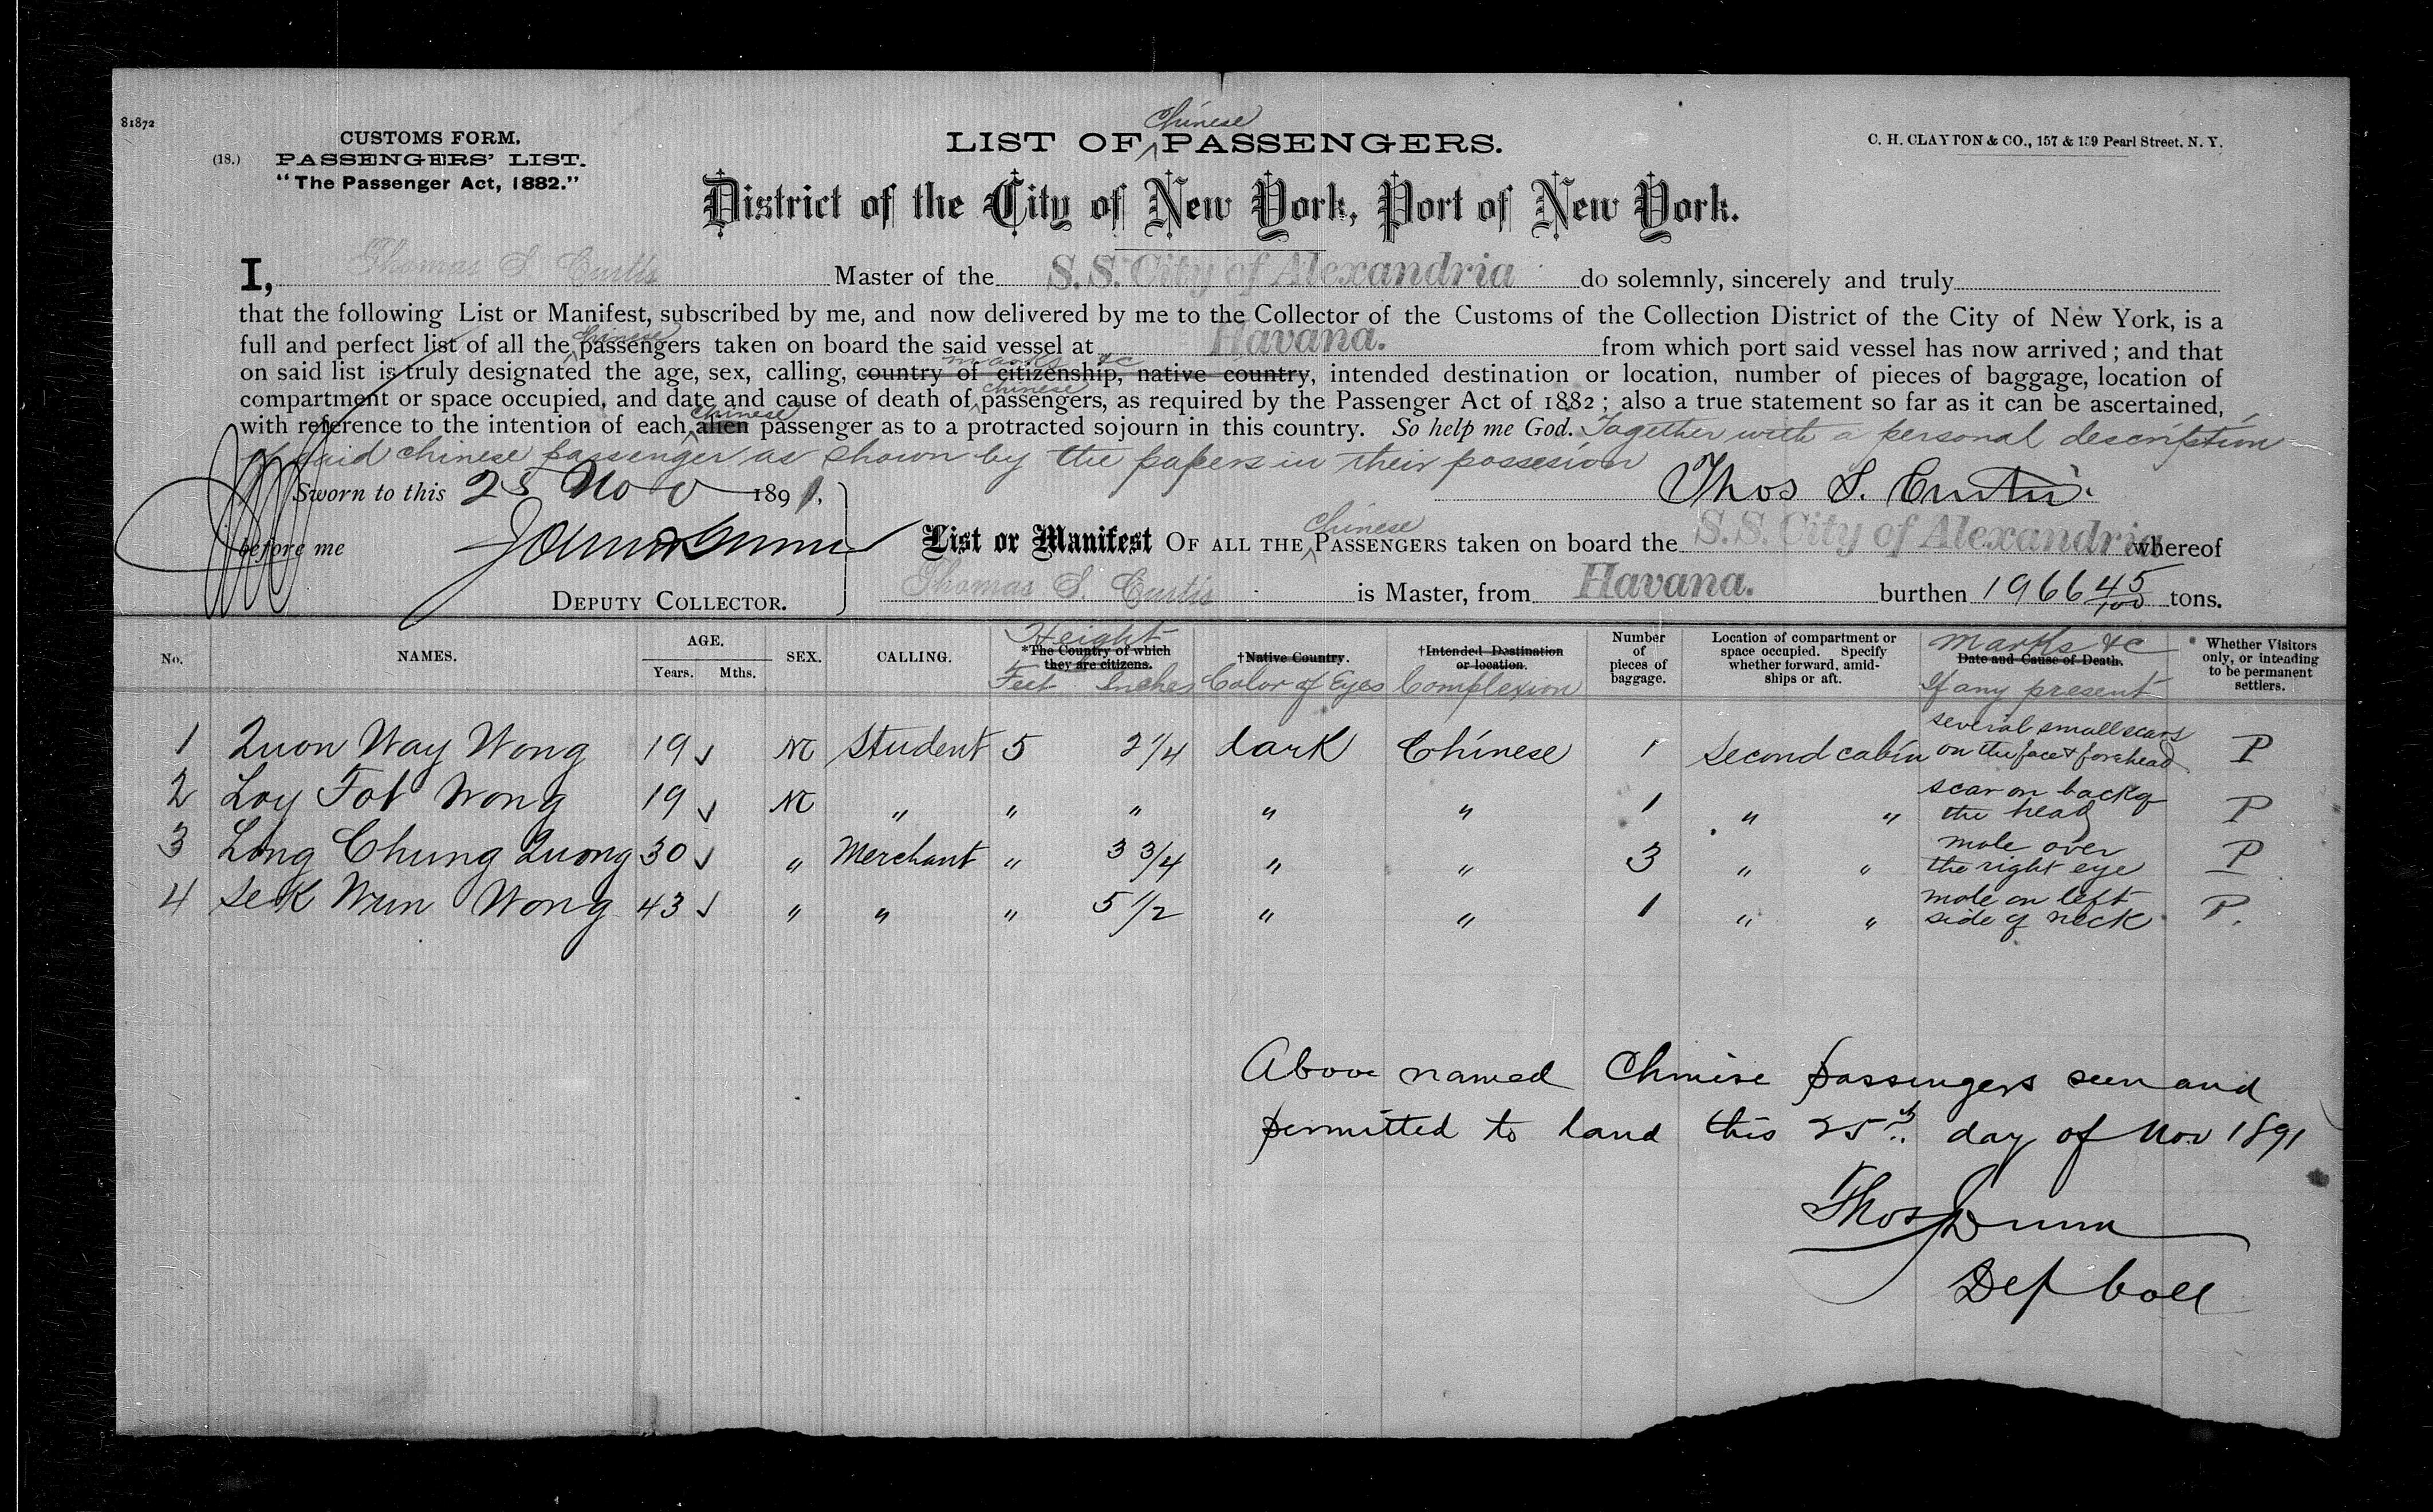 81872
CUSTOMS FORM.
(18.) PASSENGERS' LIST.
"The Passenger Act, 1882."
Chinese
LIST OF PASSENGERS.
C. H. CLAYTON & CO., 157 & 159 Pearl Street, N. Y.
District of the City of New York, Port of New York.
I, Thomas S. Curtis Master of the S.S. City of Alexandria do solemnly, sincerely and truly
that the following List or Manifest, subscribed by me, and now delivered by me to the Collector of the Customs of the Collection District of the City of New York, is a
Chinese
full and perfect list of all the passengers taken on board the said vessel at Havana. from which port said vessel has now arrived; and that
marks &c
on said list is truly designated the age, sex, calling, country of citizenship, native country, intended destination or location, number of pieces of baggage, location of
chinese
compartment or space occupied, and date and cause of death of passengers, as required by the Passenger Act of 1882; also a true statement so far as it can be ascertained,
chinese
with reference to the intention of each alien passenger as to a protracted sojourn in this country. So help me God. Together with a personal description
of said chinese passenger as shown by the papers in their possesion
Sworn to this 25 Nov 1891.
Thos S. Curtis.
before me
DEPUTY COLLECTOR.
Chinese
List or Manifest OF ALL THE PASSENGERS taken on board the S.S. City of Alexandria whereof
Thomas S. Curtis is Master, from Havana. burthen 1966 45/100 tons.
No. NAMES. AGE. Years. Mths. SEX. CALLING. Height *The Country of which they are citizens. Feet Inches †Native Country. Color of Eyes †Intended Destination or location. Complexion Number of pieces of baggage. Location of compartment or space occupied. Specify whether forward, amidships or aft. Marks &c Date and Cause of Death. If any present Whether Visitors only, or intending to be permanent settlers.
1 Quon Way Wong 19 ✓ M Student 5 2 1/4 dark Chinese 1 Second cabin several small scars on the face & forehead P
2 Loy Fot Wong 19 ✓ M " " " " " 1 " " scar on back of the head P
3 Long Chung Quong 30 ✓ " Merchant " 3 3/4 " " 3 " " mole over the right eye P
4 Sek Wun Wong 43 ✓ " " " 5 1/2 " " 1 " " mole on left side of neck P.
Above named Chinese passengers seen and
permitted to land this 25th day of Nov 1891
Thos Dunn
Dep Coll